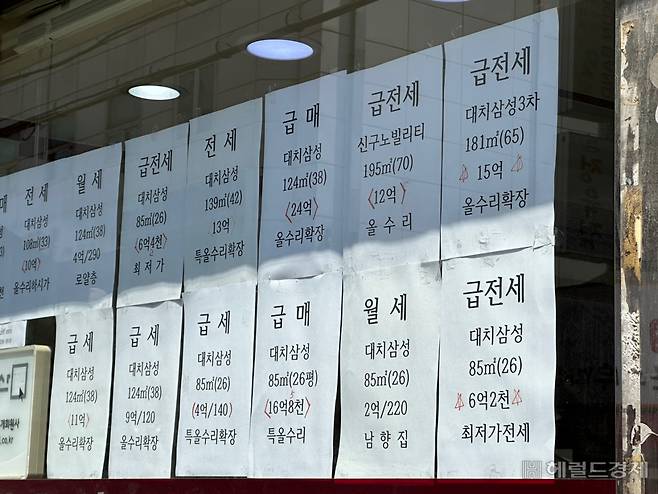 전 세
대치삼성
108㎡(33)
〈10억〉
올수리하시가
월 세
대치삼성
124㎡(38)
4억/290
로얄층
급전세
대치삼성
85㎡(26)
〈6억4천〉
최저가
전 세
대치삼성
139㎡(42)
13억
특올수리확장
급 매
대치삼성
124㎡(38)
〈24억〉
올수리확장
급전세
신구노빌리티
195㎡(70)
〈12억〉
올 수 리
급전세
대치삼성3차
181㎡(65)
15억
올수리확장
급 세
대치삼성
124㎡(38)
〈11억〉
올수리확장
급 세
대치삼성
124㎡(38)
9억/120
올수리확장
급 세
대치삼성
85㎡(26)
〈4억/140〉
특올수리확장
급 매
대치삼성
85㎡(26평)
〈16억8천〉
특올수리
월 세
대치삼성
85㎡(26)
2억/220
남향집
급전세
대치삼성
85㎡(26)
6억2천
최저가전세
헤럴드경제